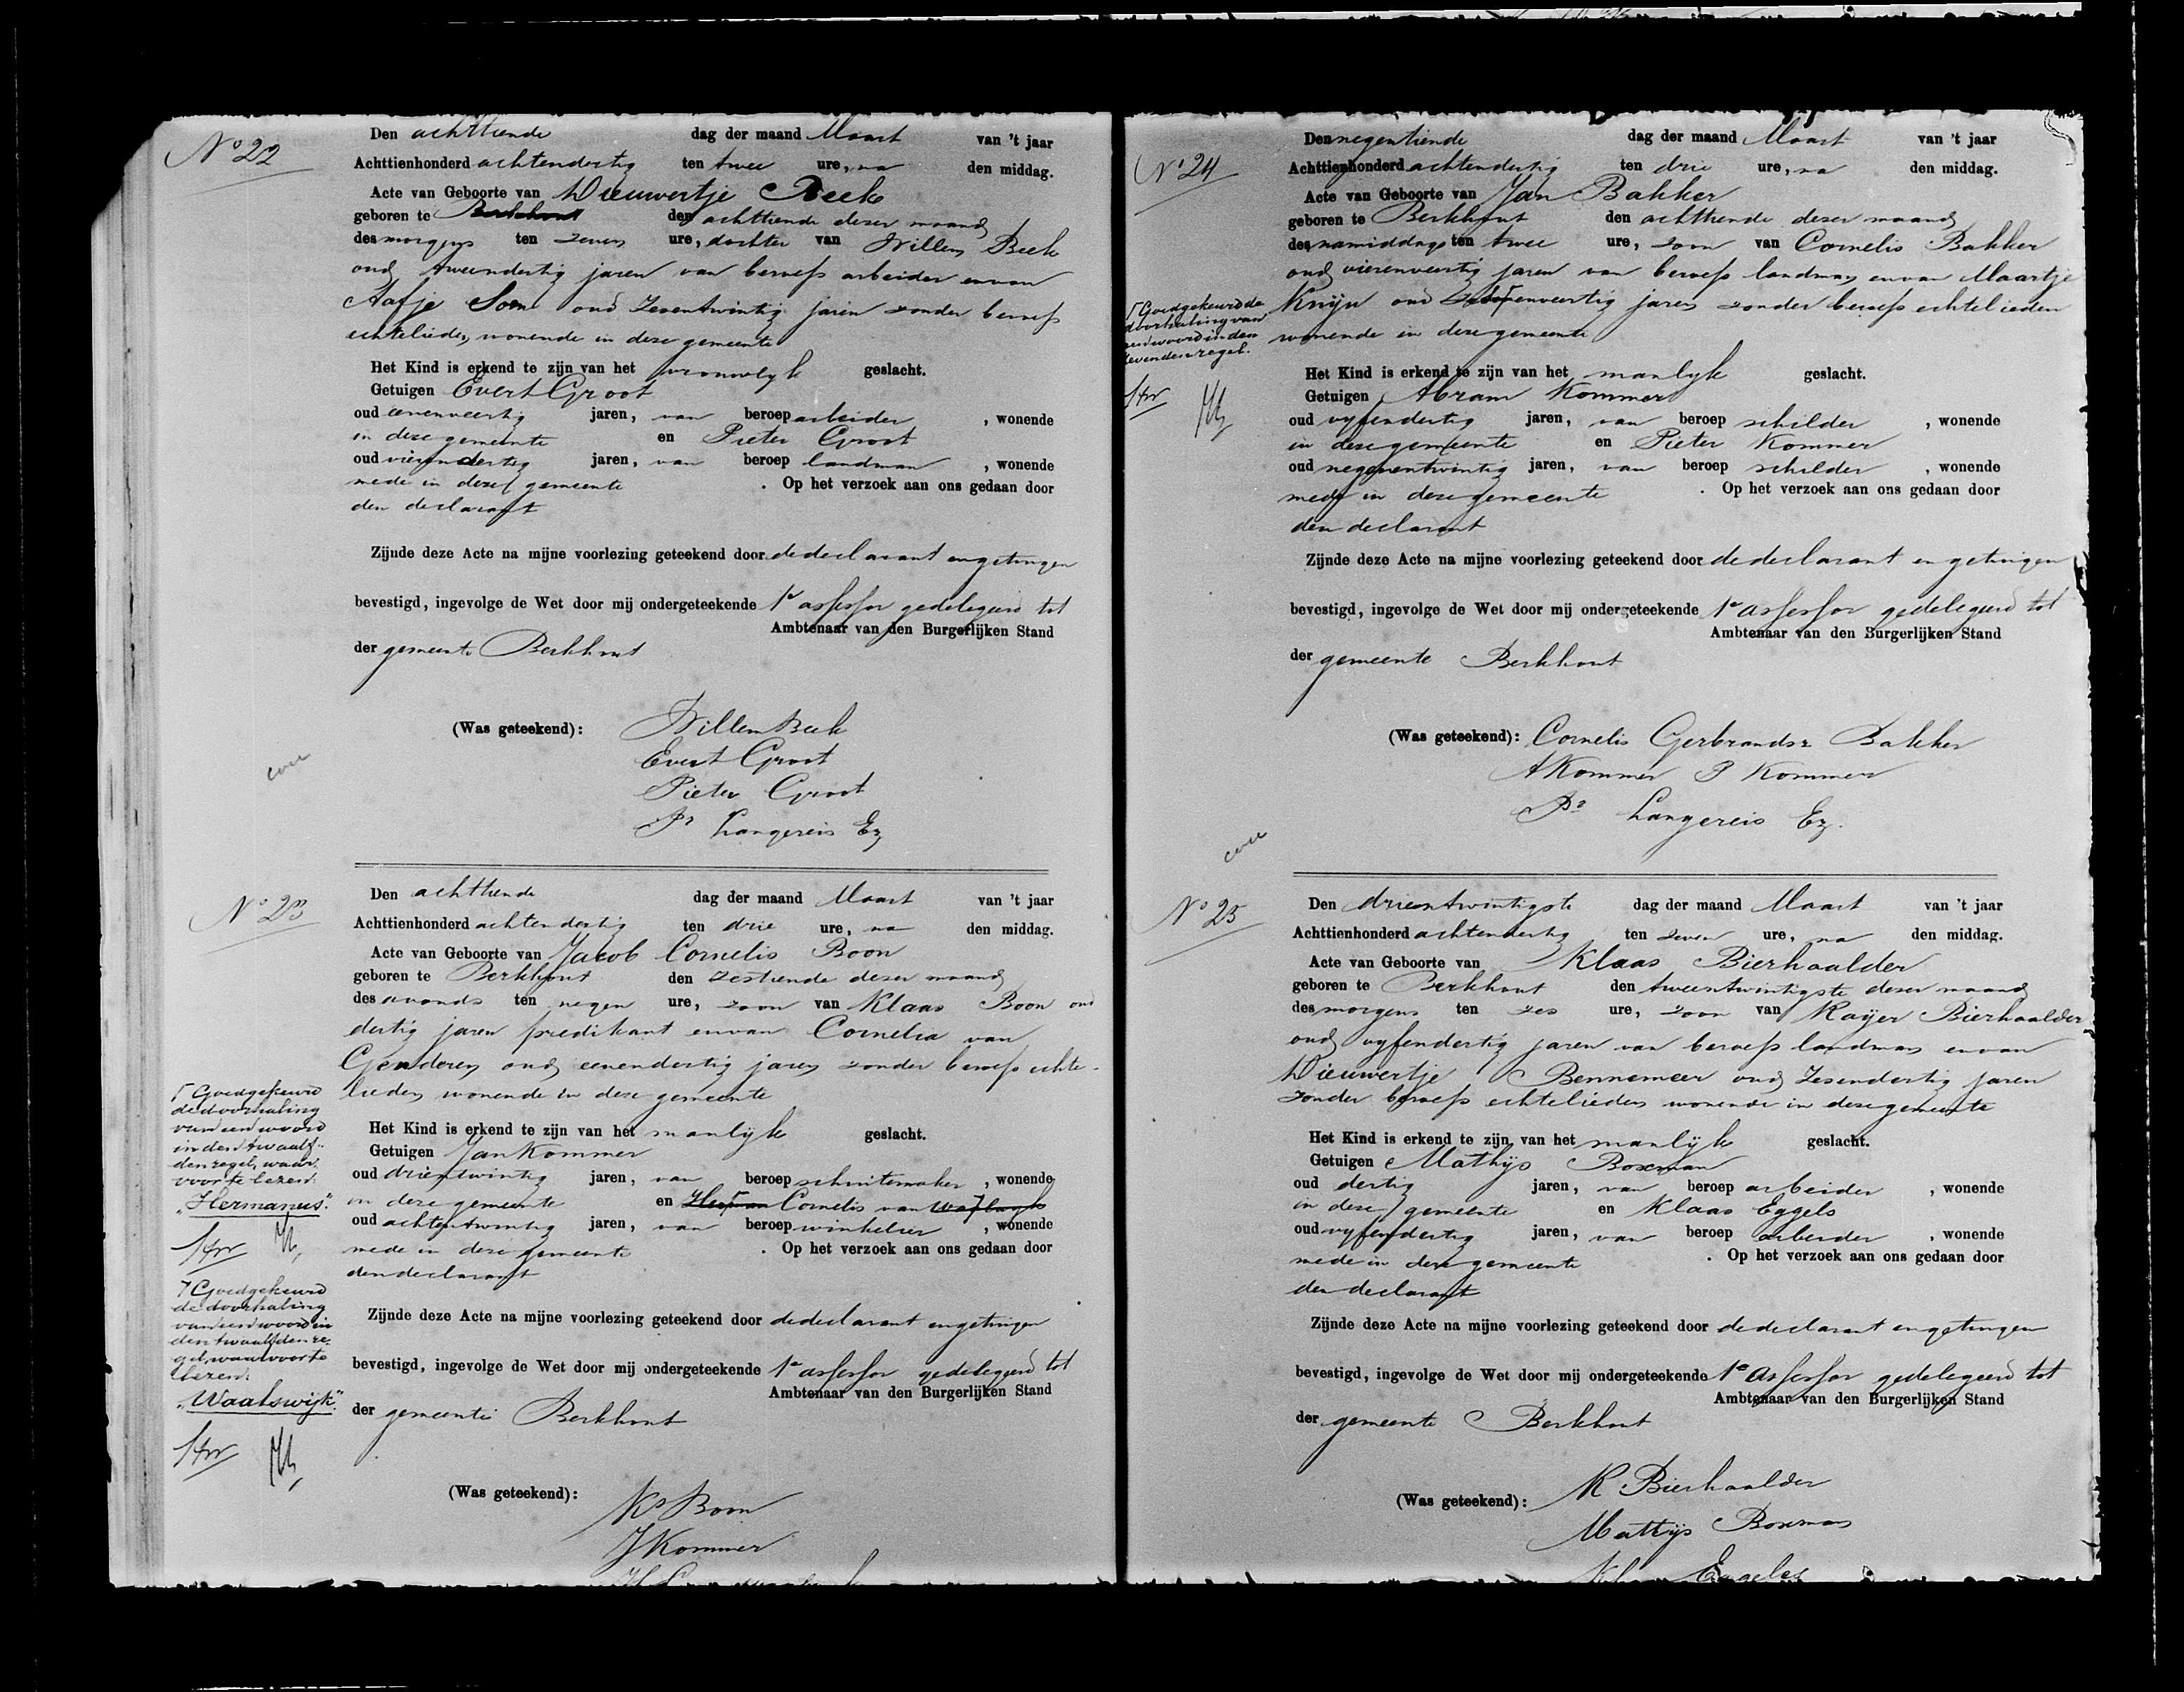 No 22
Den achttiende dag der maand Maart van 't jaar
Achttienhonderd achtendertig ten twee ure, na den middag.
Acte van Geboorte van Dieuwertje Beek
geboren te Berkhout den achttiende dezer maand
des morgens ten zeven ure, dochter van Willem Beek
oud tweendertig jaren van beroep arbeider en van
Aafje Som oud zesentwintig jaren zonder beroep
echtelieden, wonende in deze gemeente
Het Kind is erkend te zijn van het vrouwelyk geslacht.
Getuigen Evert Groot
oud eenenveertig jaren, van beroep arbeider, wonende
in deze gemeente en Pieter Groot
oud vierendertig jaren, van beroep landman, wonende
mede in deze gemeente. Op het verzoek aan ons gedaan door
den declarant
Zijnde deze Acte na mijne voorlezing geteekend door de declarant en getuigen
bevestigd, ingevolge de Wet door mij ondergeteekende 1e assessor gedelegeerd tot
Ambtenaar van den Burgerlijken Stand
der gemeente Berkhout
(Was geteekend): Willem Beek
Evert Groot
Pieter Groot
Pr Langereis Ez
No 23
Den achttiende dag der maand Maart van 't jaar
Achttienhonderd achtendertig ten drie ure, na den middag.
Acte van Geboorte van Jacob Cornelis Boon
geboren te Berkhout den zestiende dezer maand
des avonds ten negen ure, zoon van Klaas Boon oud
dertig jaren predikant en van Cornelia van
Genderen oud eenendertig jaren zonder beroep echte-
lieden wonende in deze gemeente
Het Kind is erkend te zijn van het manlijk geslacht.
Getuigen Jan Kommer
oud drientwintig jaren, van beroep schuitemaker, wonende
in deze gemeente en Cornelis van
oud achtentwintig jaren, van beroep winkelier, wonende
mede in deze gemeente. Op het verzoek aan ons gedaan door
den declarant
Zijnde deze Acte na mijne voorlezing geteekend door de declarant en getuigen
bevestigd, ingevolge de Wet door mij ondergeteekende 1e assessor gedelegeerd tot
Ambtenaar van den Burgerlijken Stand
der gemeente Berkhout
(Was geteekend): Ks Boon
J Kommer
Goedgekeurd
de doorhaling
van een woord
in den twaalf-
den regel, waar-
voor te lezen:
"Hermanus".
Goedgekeurd
de doorhaling
van een woord in
den twaalfden re-
gel, waarvoor te
lezen:
"Waalswijk".
No 24
Den negentiende dag der maand Maart van 't jaar
Achttienhonderd achtendertig ten drie ure, na den middag.
Acte van Geboorte van Jan Bakker
geboren te Berkhout den achttiende dezer maand
des namiddags ten twee ure, zoon van Cornelis Bakker
oud vierenveertig jaren van beroep landman en van Maartje
Knijn oud enveertig jaren zonder beroep echtelieden
wonende in deze gemeente
Goedgekeurd de
doorhaling van
een woord in den
zevenden regel.
Het Kind is erkend te zijn van het manlyk geslacht.
Getuigen Abram Kommer
oud vyfendertig jaren, van beroep schilder, wonende
in deze gemeente en Pieter Kommer
oud negenentwintig jaren, van beroep schilder, wonende
mede in deze gemeente. Op het verzoek aan ons gedaan door
den declarant
Zijnde deze Acte na mijne voorlezing geteekend door de declarant en getuigen
bevestigd, ingevolge de Wet door mij ondergeteekende 1e assessor gedelegeerd tot
Ambtenaar van den Burgerlijken Stand
der gemeente Berkhout
(Was geteekend): Cornelis Gerbrandsz Bakker
A Kommer P Kommer
Pr Langereis Ez.
No 25
Den drientwintigste dag der maand Maart van 't jaar
Achttienhonderd achtendertig ten zeven ure, na den middag.
Acte van Geboorte van Klaas Bierhaalder
geboren te Berkhout den tweentwintigste dezer maand
des morgens ten zes ure, zoon van Rayer Bierhaalder
oud vyfendertig jaren van beroep landman en van
Dieuwertje Bennemeer oud zesendertig jaren
zonder beroep echtelieden wonende in deze gemeente
Het Kind is erkend te zijn van het manlijk geslacht.
Getuigen Mathijs Boxman
oud dertig jaren, van beroep arbeider, wonende
in deze gemeente en Klaas Eggels
oud vyfendertig jaren, van beroep arbeider, wonende
mede in deze gemeente. Op het verzoek aan ons gedaan door
den declarant
Zijnde deze Acte na mijne voorlezing geteekend door de declarant en getuigen
bevestigd, ingevolge de Wet door mij ondergeteekende 1e assessor gedelegeerd tot
Ambtenaar van den Burgerlijken Stand
der gemeente Berkhout
(Was geteekend): R Bierhaalder
Mathijs Boxman
Klaas Eggeles